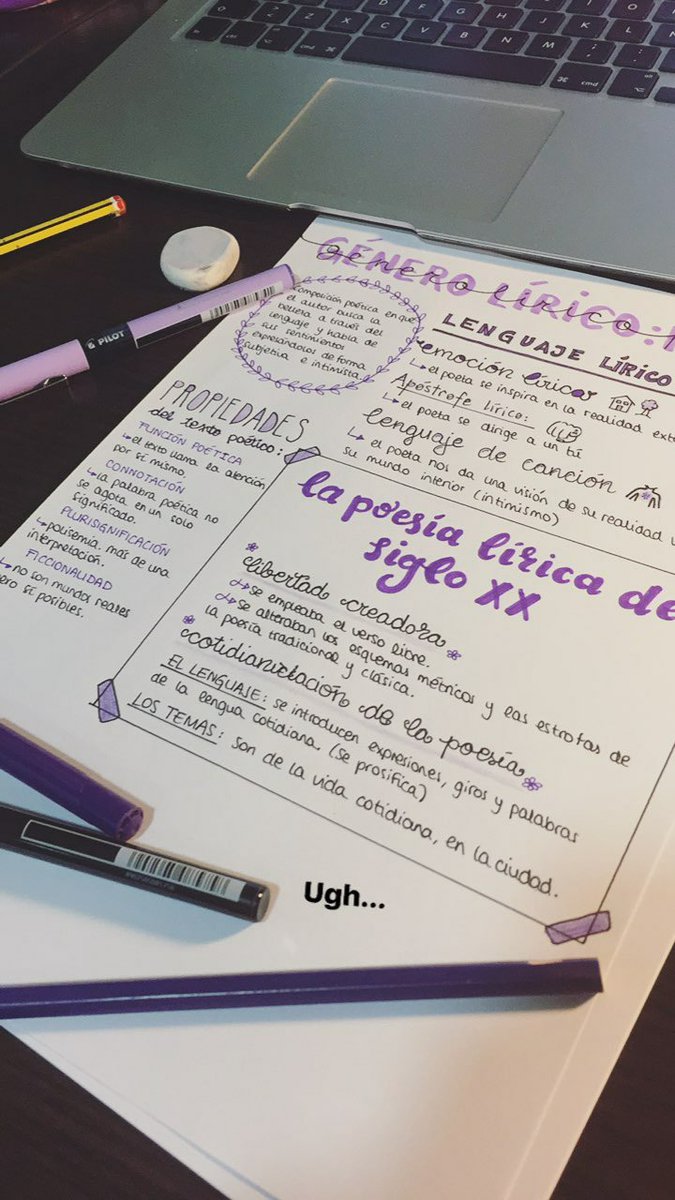 GÉNERO LÍRICO:
género lírico
Composición poética en que
el autor busca la
belleza a través del
lenguaje y habla de
sus sentimientos
expresándolos de forma
subjetiva e intimista.
LENGUAJE LÍRICO
emoción lírica:
↳ el poeta se inspira en la realidad
Apóstrofe lírico:
↳ el poeta se dirige a un tú
lenguaje de canción
↳ el poeta nos da una visión de su realidad
su mundo interior (intimismo)
PROPIEDADES
del texto poético:
FUNCIÓN POÉTICA
↳ el texto llama la atención
por sí mismo.
CONNOTACIÓN
↳ la palabra poética no
se agota en un solo
significado.
PLURISIGNIFICACIÓN
↳ polisemia, más de una
interpretación.
FICCIONALIDAD
↳ no son mundos reales
pero sí posibles.
la poesía lírica de
siglo XX
libertad creadora
↳ se empleaba el verso libre.
↳ se alteraban los esquemas métricos y las estrofas de
la poesía tradicional y clásica.
cotidianización de la poesía
EL LENGUAJE: se introducen expresiones, giros y palabras
de la lengua cotidiana. (se prosifica)
LOS TEMAS: son de la vida cotidiana, en la ciudad.
PILOT
Ugh...